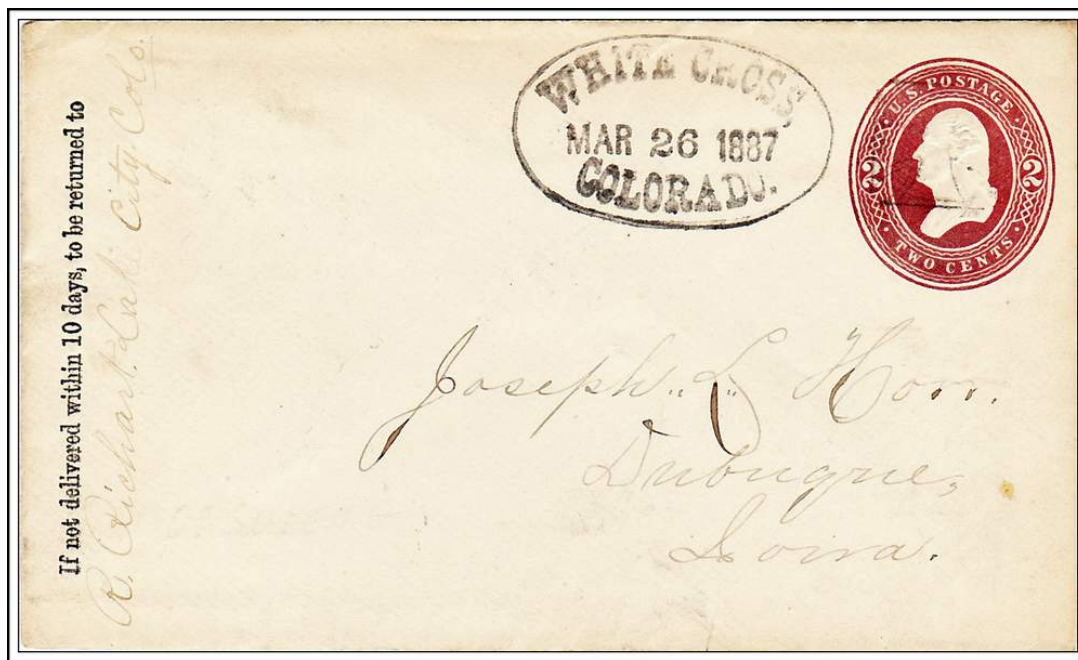 If not delivered within 10 days, to be returned to
R. Richart. Lake City Colo.
WHITE CROSS,
MAR 26 1887
COLORADO.
U.S. POSTAGE
2 2
TWO CENTS
Joseph L. Horr.
Dubuque,
Iowa.